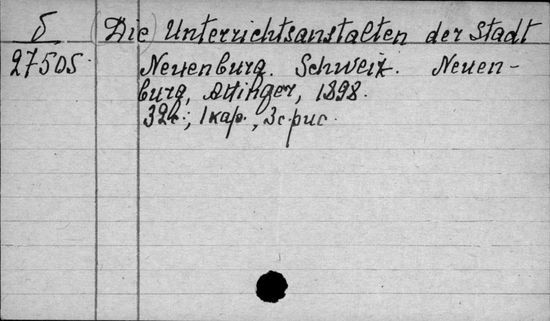 б (Die) Unterrichtsanstalten der Stadt
27505. Neuenburg. Schweiz. Neuen-
burg, Attinger, 1898.
32с.; 1 кар., 3с рис.